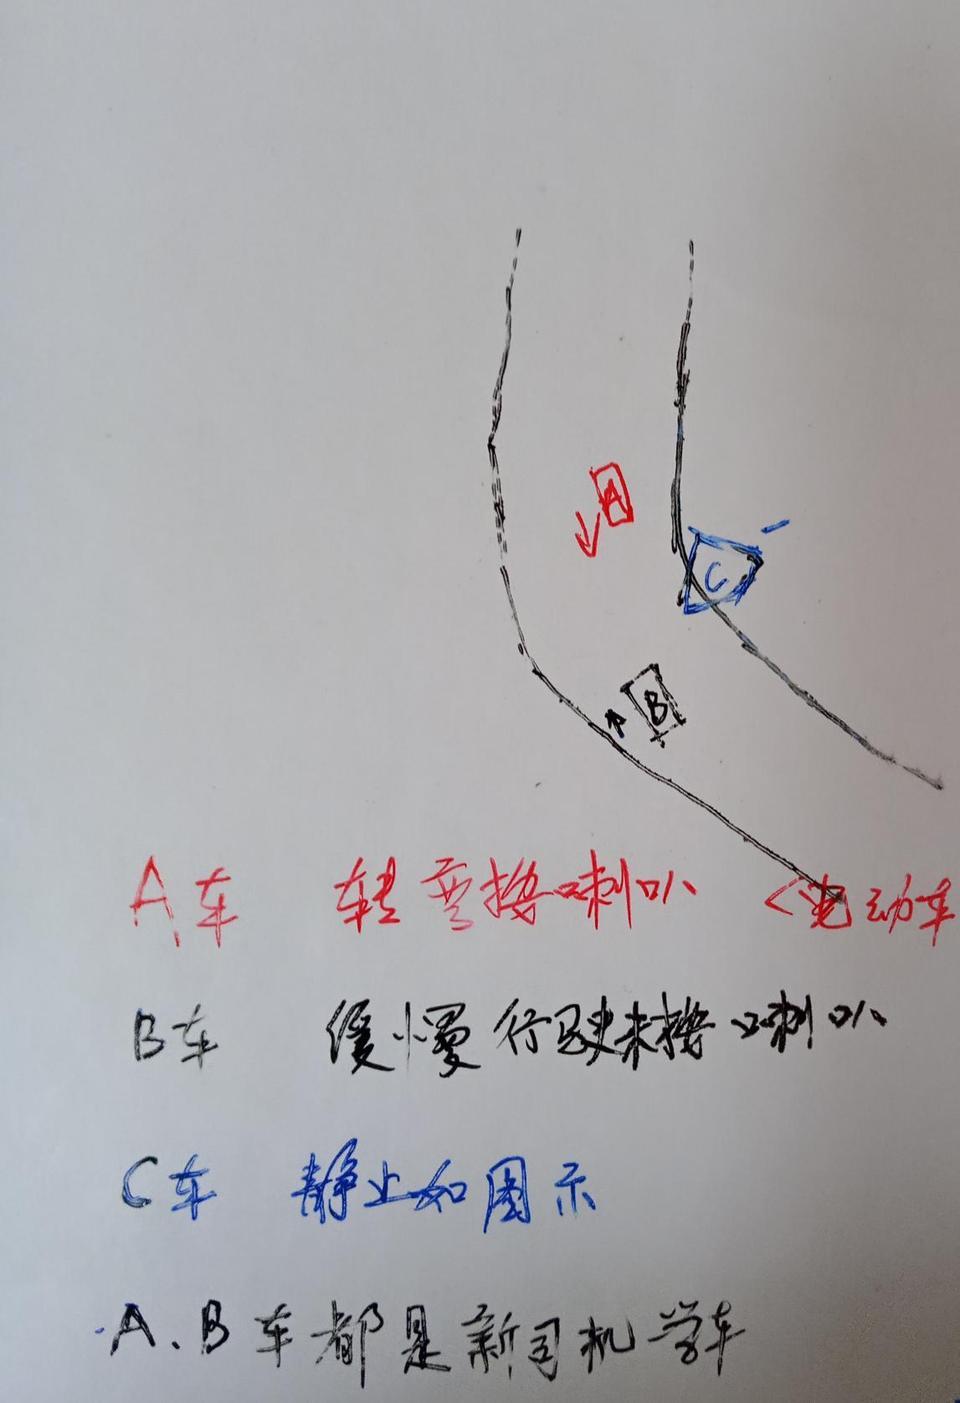 A
C
B
A车 转弯按喇叭 <电动车
B车 缓慢行驶未按喇叭
C车 静止如图示
A、B车都是新司机学车